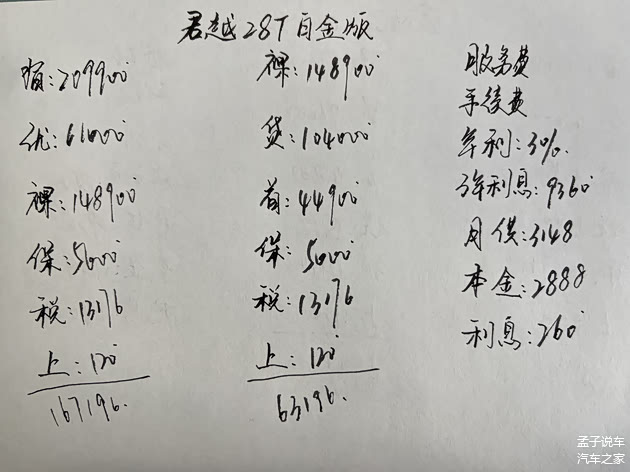 君越28T百金版
指:209900
优:61000
裸:148900
保:5000
税:13176
上:120
167196.
裸:148900
贷:104000
首:44900
保:5000
税:13176
上:120
63196.
服务费
手续费
年利:3%.
3年利息:9360
月供:3148
本金:2888
利息:260
孟子说车
汽车之家